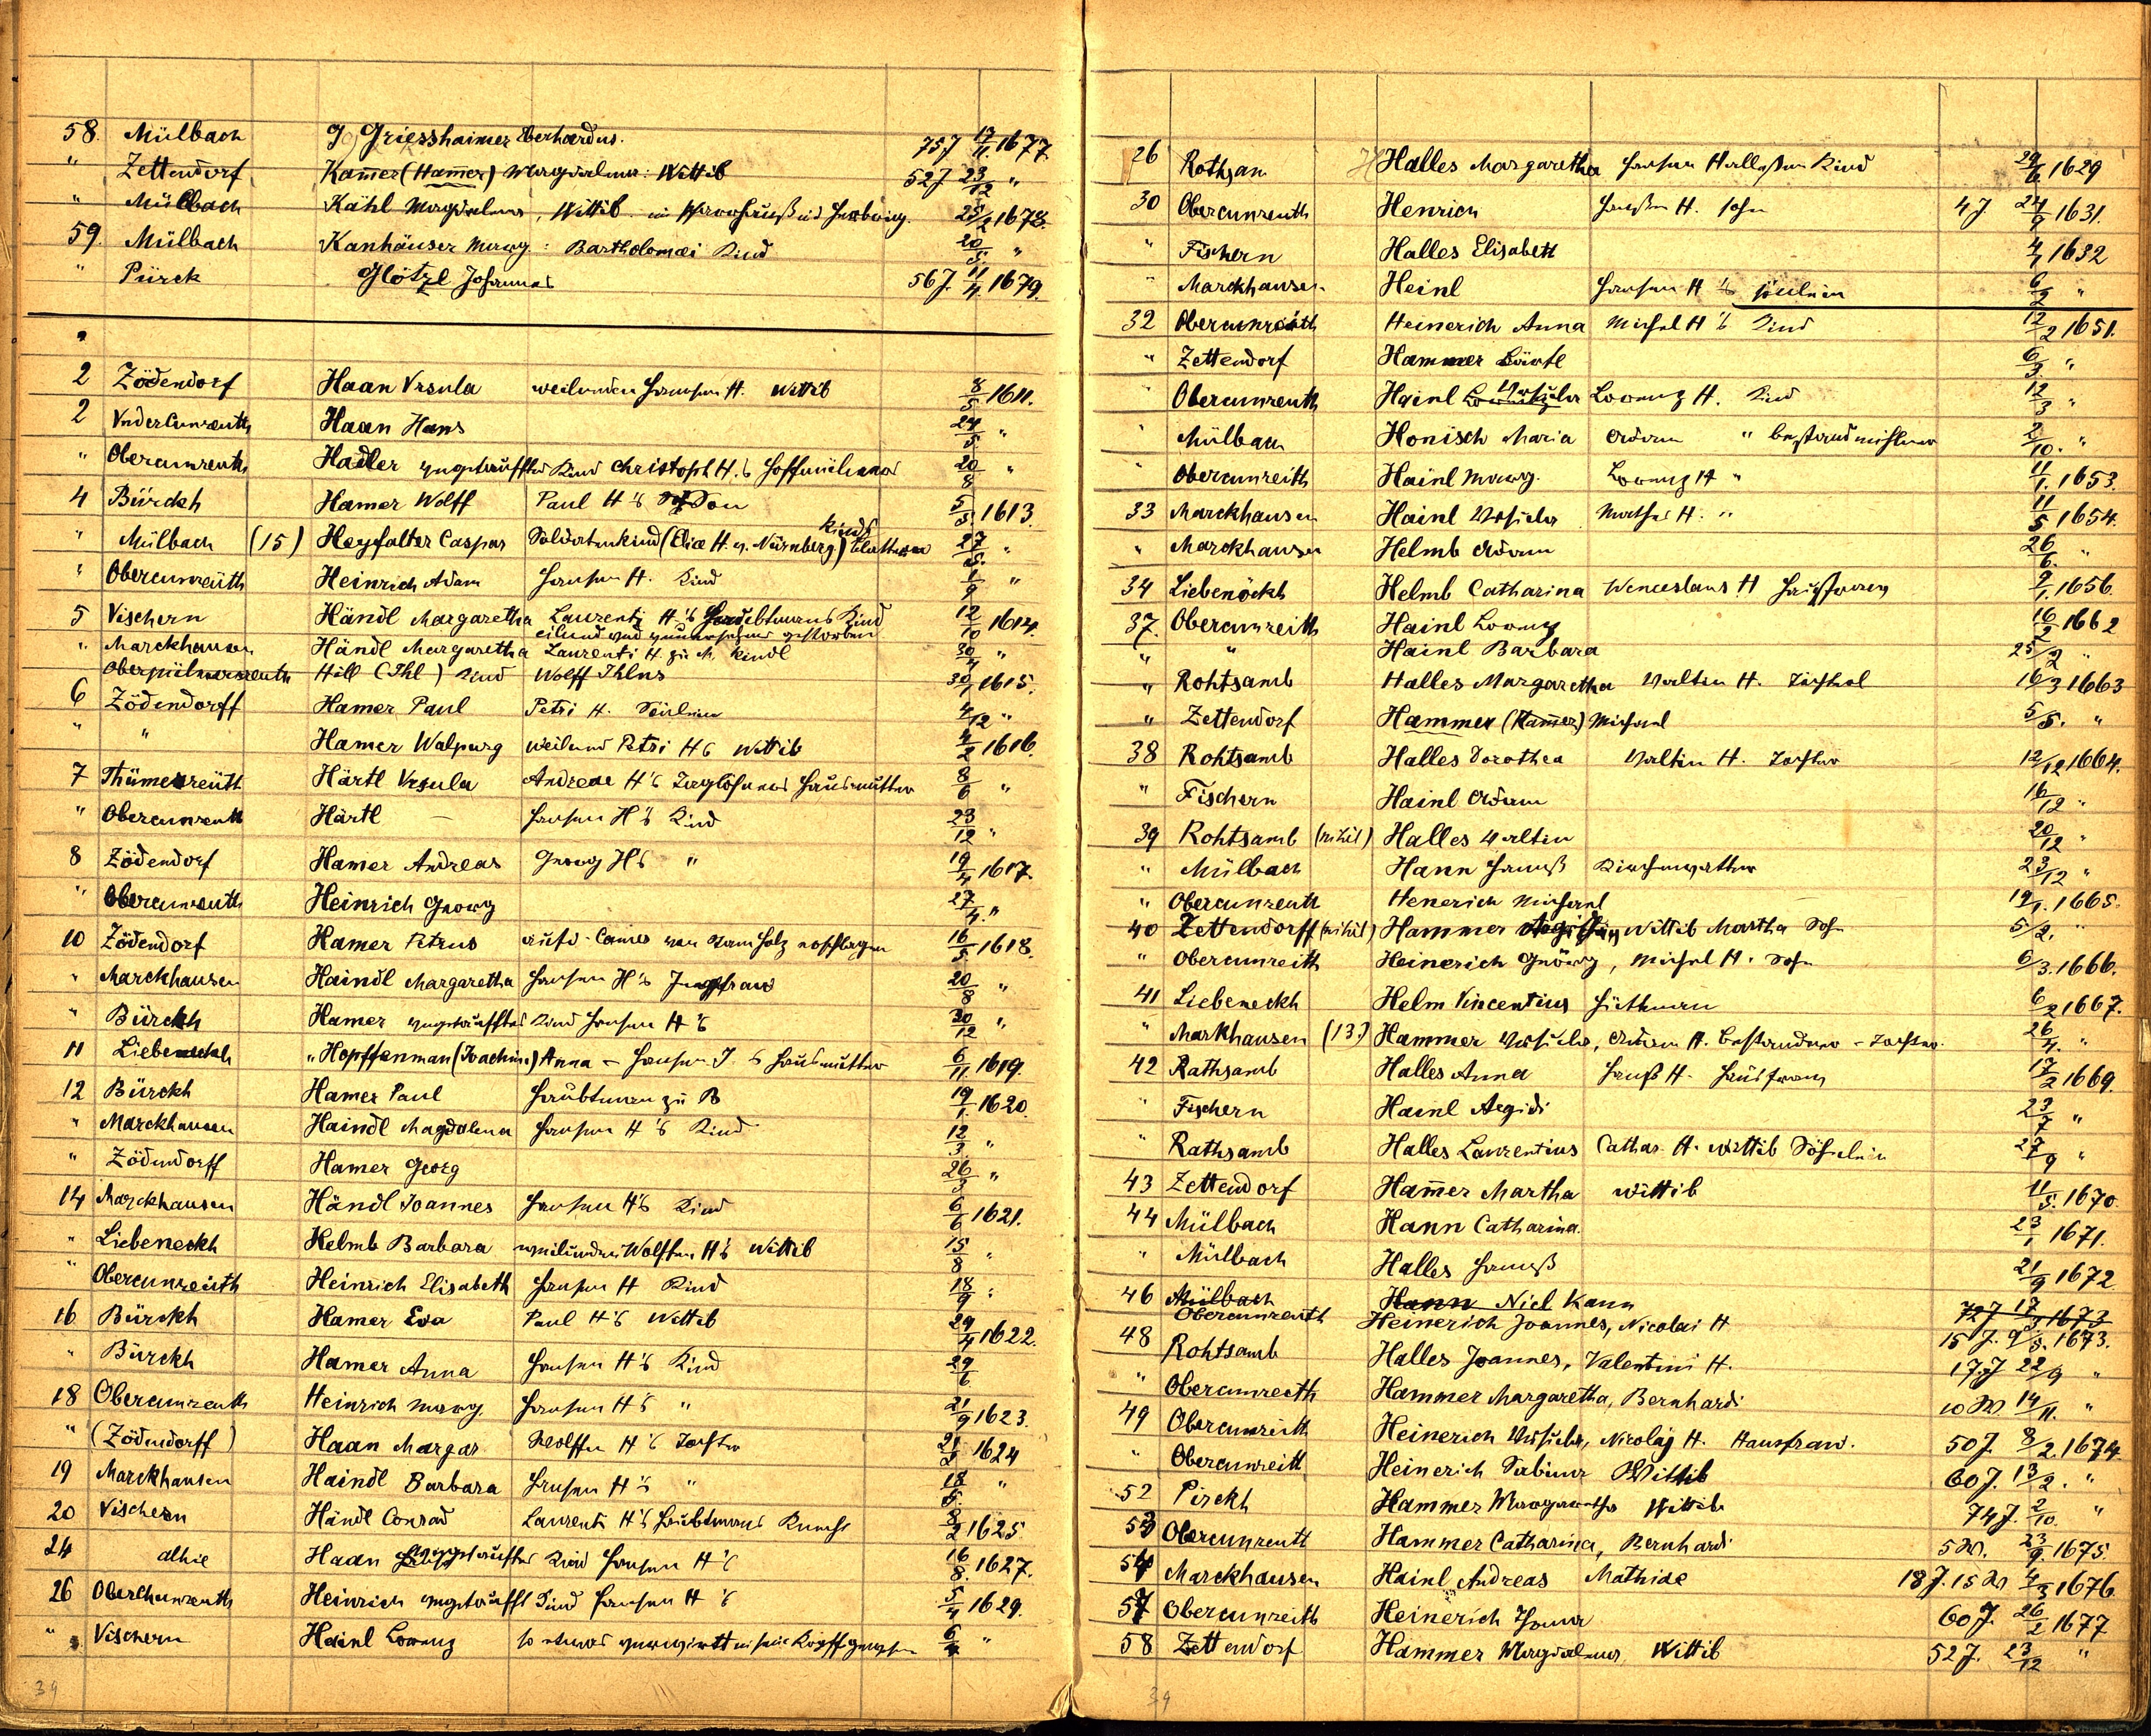 58. Mülbach G Griesshaimer Eberhardus. 75 J 17/11. 1677.
" Zettendorf Kam̄er (Ham̄er) Magdalena: Wittib 52 J 23/12 "
" Mülbach Kahl Magdalena, Wittib im 25/2 1678.
59. Mülbach Kanhäuser Marg: Bartholomæi Kind 20/5. "
" Pürck Glötzl Johannes 56 J. 11/4. 1679.
2 Zödendorf Haan Vrsula weilunden Hansen H. Wittib 8/5 1611.
2 Vndercunreuth Haan Hans 24/5 "
" Obercunreuth Hadler ungetauffts Kind Christoph H.s Hoffmülners 20/8 "
4 Bürckh Hamer Wolff Paul H's Son 5/5. 1613.
" Mülbach (15) Heyfalter Caspar Soldatenkind (Elice H. v. Nürnberg) Kinds 27/5. "
" Obercunreuth Heinrich Adam Hansen H. Kind 1/9 "
5 Vischern Händl Margaretha Laurentz H's Kind 12/10 1614.
eilund und gestorben
" Marckhausen Händl Margaretha Laurenti H. zu M. Kindl 30/4 "
Oberpülmersreuth Hill (Ihl) Kind Wolff Ihlns 30/1 1615.
6 Zödendorff Hamer Paul Petri H. Söhnlein 4/12 "
" " Hamer Walpurg weilund Petri Hs Wittib 4/2 1616.
7 Thümesreüth Härtl Vrsula Andreae H's Taglöhners Hausmutter 8/6 "
" Obercunreuth Härtl – Hansen H's Kind 23/12 "
8 Zödendorf Hamer Andreas Georg Hs " 19/4 1617.
" Obercunreuth Heinrich Georg 27/4. "
10 Zödendorf Hamer Petrus 16/5. 1618.
" Marckhausen Haindl Margaretha Hansen H's Jungfraw 20/8 "
" Bürckh Hamer ungetaufftes Kind Hansen H's 30/12 "
11 Liebeneckh "Hopffenman (Joachim) Anna – Hansen J. s Hausmutter 6/11. 1619.
12 Bürckh Hamer Paul Haubtman zu B 19/1. 1620.
" Marckhausen Haindl Magdalena Hansen H's Kind 12/3. "
" Zödendorff Hamer Georg 26/3 "
14 Marckhausen Händl Joannes Hansen H's Kind 6/6 1621.
" Liebeneckh Helmb Barbara weilunden Wolffen H's Wittib 15/8 "
" Obercunreüth Heinrich Elisabeth Hansen H Kind 18/9 "
16 Bürckh Hamer Eva Paul H's Wittib 29/4 1622.
" Bürckh Hamer Anna Hansen H's Kind 29/6
18 Obercunreuth Heinrich Marg. Hansen Hs " 21/9 1623.
" (Zödendorff) Haan Margar Wolffen H's Tochter 21/2 1624
19 Marckhausen Haindl Barbara Hansen H's " 18/8. "
20 Vischern Händl Conrad Laurenti H's Haubtmans 8/2 1625
24 alhie Haan ungetaufftes Kind Hansen H's 16/8. 1627.
26 Oberchunreuth Heinrich ungetaufft Kind Hansen H's 5/4 1629.
" Vischern Hainl Lorenz so etwas 6/4 "
39
26 Rothsan Halles Margaretha Hansen Hallessen Kind 29/6 1629
30 Obercunreuth Henrich Hansen H. sohn 4 J. 24/9 1631.
" Fischern Halles Elisabett 4/1 1632
" Marckhausen Heinl Hansen H's 6/2 "
32 Obercunreüth Heinerich Anna Michel H's Kind 12/2 1651.
" Zettendorf Hammer Bärtl 6/3. "
" Obercunreuth Hainl Lorentz Ursula Lorenz H. Kind 12/3 "
" Mülbach Honisch Maria Adam " bestandmüllner 2/10. "
" Obercunreith Hainl Marg. Lorenz H " 11/1. 1653.
33 Marckhausen Hainl Ursula Mathes H. " 11/5 1654.
" Marckhausen Helmb Adam 26/6. "
34 Liebenöckh Helmb Catharina Wenceslaus H Hausfrawen 9/1. 1656.
37. Obercunreith Hainl Lorenz 16/2 1662
" " Hainl Barbara 25/2 "
" Rohtsamb Halles Margaretha Valtin H. 16/3 1663
" Zettendorf Hammer (Kam̄er) Michael 5/5. "
38 Rohtsamb Halles Dorothea Valtin H. Tochter 12/12 1664.
" Fischern Hainl Adam 16/12 "
39 Rohtsamb (nihil) Halles Valtin 20/12 "
" Mülbach Hann Hanß 23/12 "
" Obercunreuth Henerich Michael 19/1. 1665.
40 Zettendorff (nihil) Hammer Wittib Martha Sohn 5/2. "
" Obercunreith Heinerich Geörg, Michel H. Sohn 6/3. 1666.
41 Liebeneckh Helm Vincentius Hüthman 6/2 1667.
" Markhausen (13.) Hammer Ursula, Adam H. bestandner – Tochter. 26/4. "
42 Rathsamb Halles Anna Hanß H. Hausfraw 17/2 1669.
" Fischern Hainl Aegidi 23/7 "
" Rathsamb Halles Laurentius Cathar. H. Wittib Söhnlein 27/9 "
43 Zettendorf Ham̄er Martha Wittib 11/5. 1670.
44 Mülbach Hann Catharina. 23/1 1671.
" Mülbach Halles Hanß 21/9 1672
46 Mülbach Hann Nicl Kann 72 J 17/3 1673
Obercunreuth Heinerich Joannes, Nicolai H 15 J. 9/8. 1673.
48 Rohtsamb Halles Joannes, Valentini H. 17 J 22/9 "
" Obercunreith Hammer Margaretha, Bernhardi 10 W. 14/11. "
49 Obercunreith Heinerich Ursula, Nicolaj H. Hausfraw. 50 J. 8/2. 1674.
" Obercunreitt Heinerich Sabina Wittib 60 J. 13/2. "
52 Pirckh Hammer Margaretha Wittib 74 J. 2/10. "
53 Obercunreutt Hammer Catharina, Bernhardi 5 W. 23/9. 1675.
54 Marckhausen Hainl Andreas Mathiae 18 J. 15 W 4/3 1676.
57 Obercunreith Heinerich 60 J. 26/2 1677
58 Zettendorf Hammer Magdalena, Wittib 52 J. 23/12 "
39